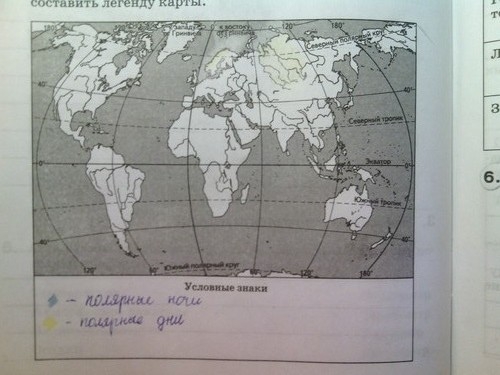 составить легенду карты.
180°
к западу
от Гринвича
к востоку
от Гринвича
120°
180°
Северный полярный круг
40°
40°
Северный тропик
0°
Экватор
0°
Южный тропик
40°
40°
Южный полярный круг
120°
60°
0°
60°
120°
180°
Условные знаки
- полярные ночи
- полярные дни
6.